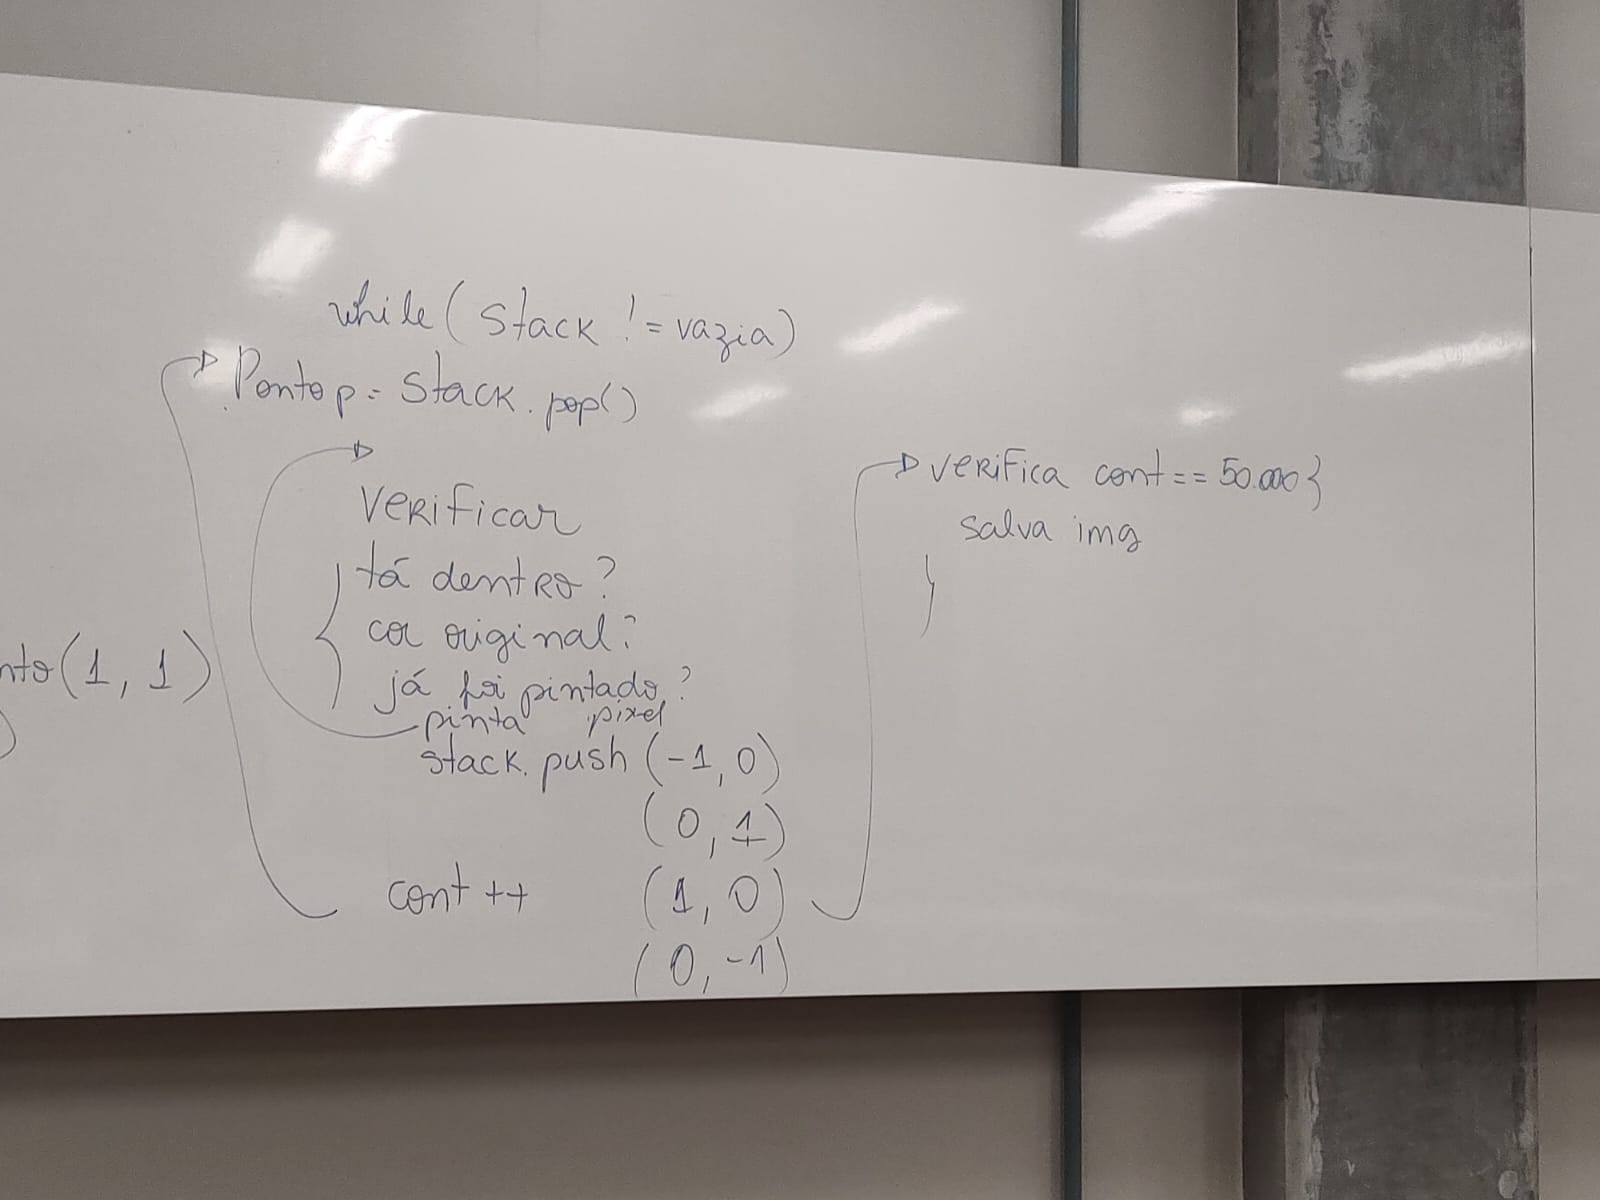 while (Stack != vazia)
Ponto p = Stack.pop()
Verificar
tá dentro?
cor original?
já foi pintado?
pinta pixel
stack.push (-1, 0)
(0, 1)
cont ++ (1, 0)
(0, -1)
verifica cont == 50.000 }
salva img
}
nto (1, 1)
)